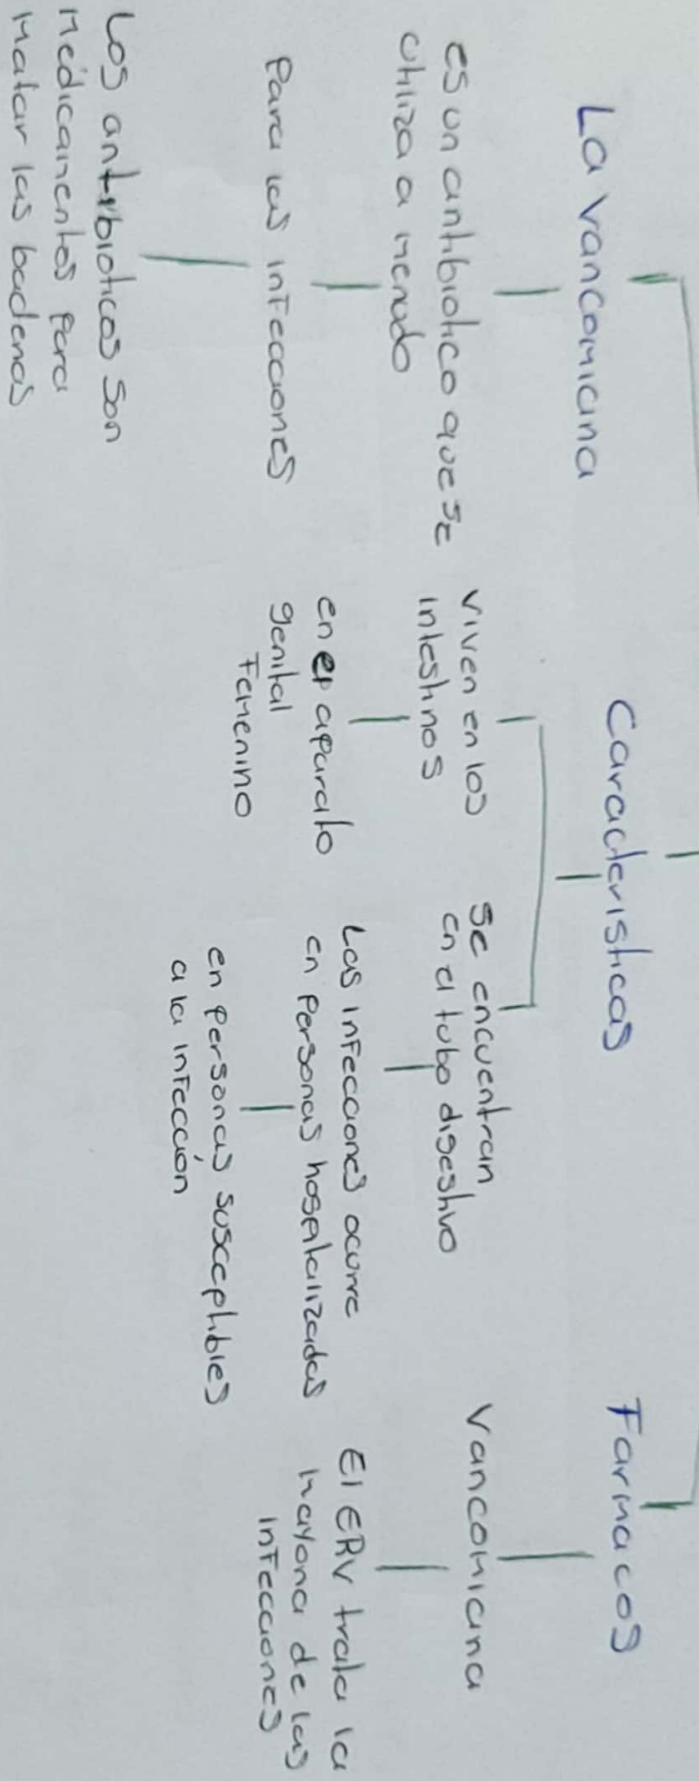 La vancomicina
es un antibiotico que se
utiliza a menudo
Para las infecciones
Los antibioticos son
medicamentos Para
matar las bacterias
Caracteristicas
viven en los
intestinos
en el aparato
genital
Femenino
se encuentran
en el tubo digestivo
Las infecciones ocurre
en Personas hospitalizadas
en Personas susceptibles
a la infección
Farmacos
Vancomicina
El ERV trata la
mayoria de las
infecciones